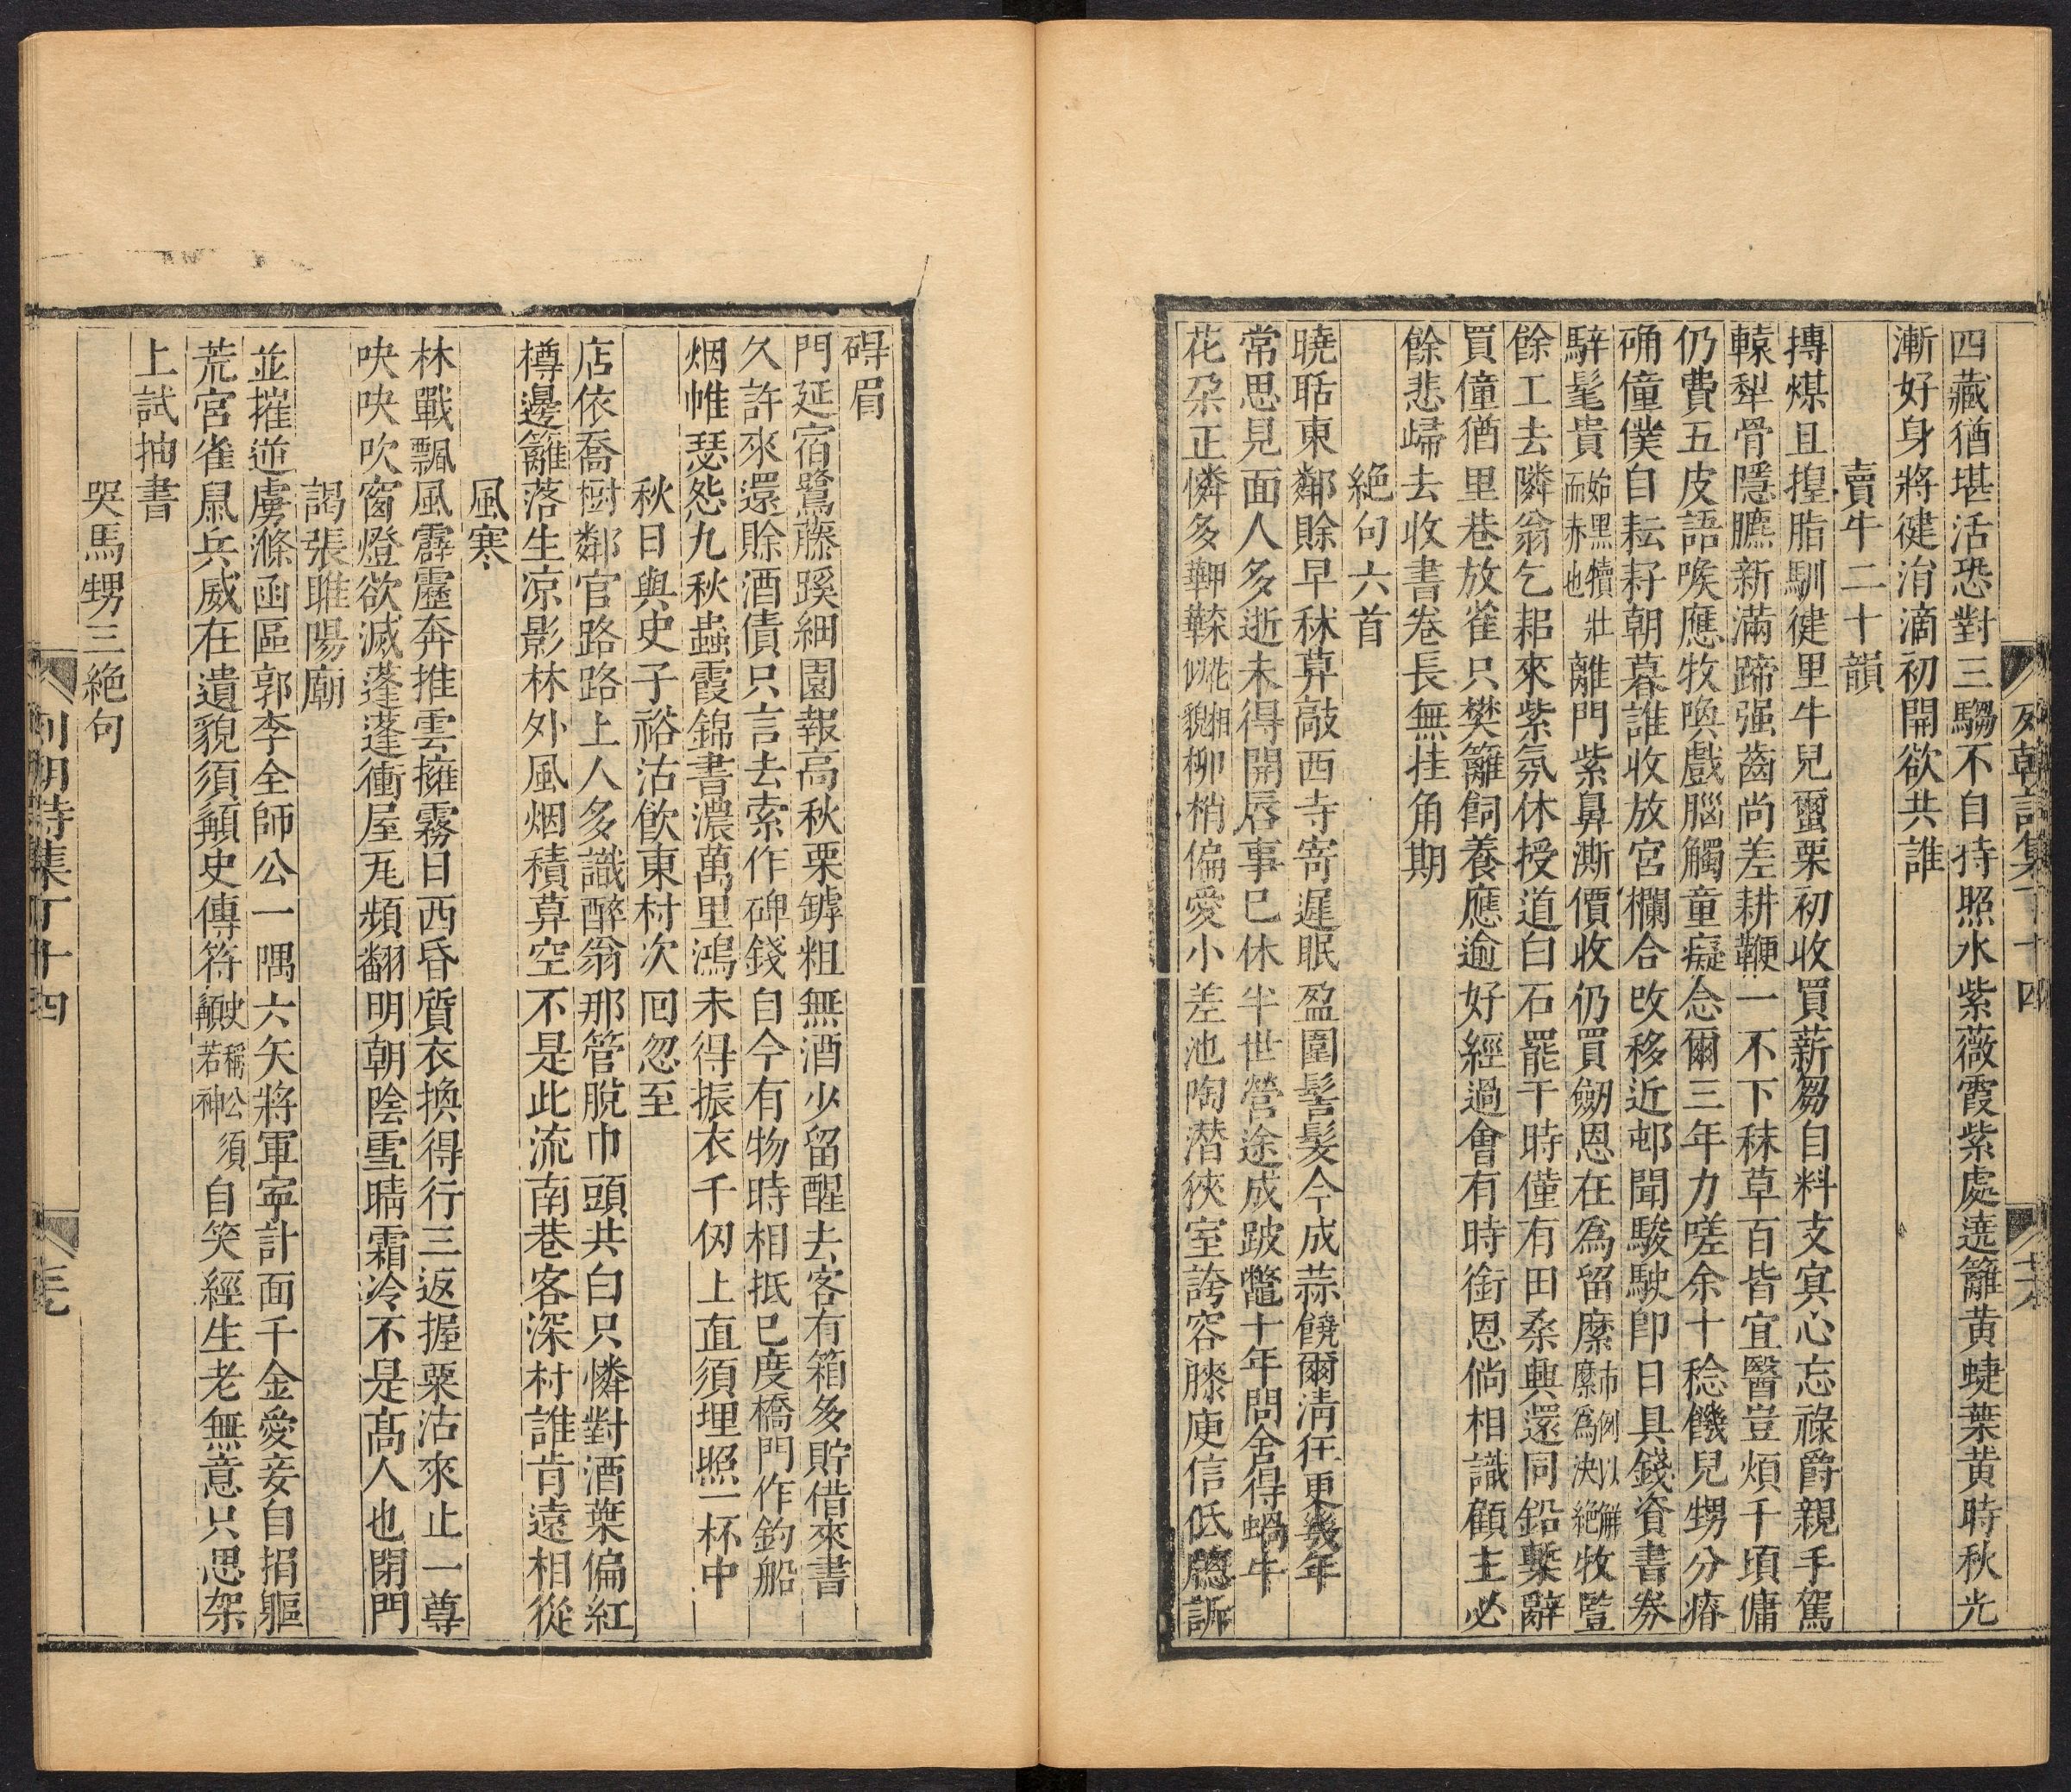 四藏猶堪活恐對三騶不自持照水紫薇霞紫處遶籬黄蜨葉黄時秋光
漸好身將徤涓滴初開欲共誰
賣牛二十韻
摶煤且揘脂馴徤里牛兒蠒栗初收買薪芻自料支寘心忘祿爵親手駕
轅犁骨隱臕新滿蹄强齒尚差耕鞭一不下秣草百皆宜醫豈煩千頃傭
仍費五皮語喉應牧喚戲腦觸童癡念爾三年力嗟余十稔饑兒甥分瘠
确僮僕自耘耔朝暮誰收放宮欄合改移近邨聞駿駛卽日具錢資書劵
騂髦貴始黑犢壯而赤也離門紫鼻澌價收仍買劒恩在為留縻市例以解縻為决絕牧豎
餘工去隣翁乞耜來紫氛休授道白石罷干時僅有田桑興還同鉛槧辭
買僮猶里巷放雀只樊籬飼養應逾好經過會有時銜恩倘相識顧主必
餘悲歸去收書卷長無挂角期
絕句六首
曉聒東鄰賖早秫算敲西寺寄遲眠盈圍髻髮今成蒜饒爾淸狂更幾年
常思見面人多逝未得開唇事已休半世營途成跛鼈十年問舍得蝸牛
花朶正憐多鞞鞢花似緗貌柳梢偏愛小差池陶潛狹室誇容膝庾信低牕訴
列朝詩集丁十四
碍眉
門延宿鷺藤蹊細園報高秋栗罅粗無酒少留醒去客有箱多貯借來書
久許來還賖酒債只言去索作碑錢自今有物時相抵已度橋門作釣船
烟帷瑟怨九秋蟲霞錦書濃萬里鴻未得振衣千仭上直須埋照一杯中
秋日與史子裕沽飮東村次囘忽至
店依喬樹鄰官路路上人多識醉翁那管脫巾頭共白只憐對酒葉偏紅
樽邊籬落生凉影林外風烟積算空不是此流南巷客深村誰肯遠相從
風寒
林戰飄風霹靂奔推雲擁霧日西昏質衣換得行三返握粟沽來止一尊
吷吷吹窗燈欲滅蓬蓬衝屋㼚頻翻明朝陰雪晴霜冷不是髙人也閉門
謁張睢陽廟
並摧逆虜滌函區郭李全師公一隅六矢將軍寧計面千金愛妾自捐軀
荒宮雀鼠兵威在遺貌須顲史傳符史稱公須顲若神自笑經生老無意只思架
上試抽書
哭馬甥三絕句
列朝詩集丁十四